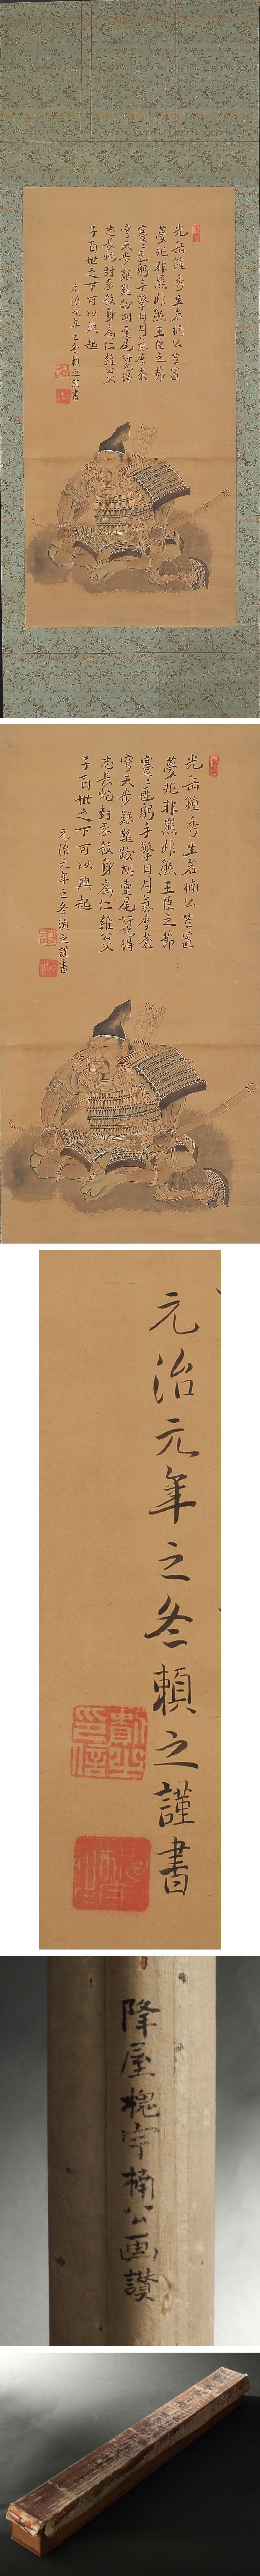 光岳鐘秀生若楠公豈
夢兆非羆非熊王臣之節
蹇〻匪躬手擎日月氣摩蒼
穹天步艱難跋胡疐尾得
志長蛇封豕殺身為仁維公父
子百世之下可以興起
元治元年之冬頼之謹書
光岳鐘秀生若楠公豈
夢兆非羆非熊王臣之節
蹇〻匪躬手擎日月氣摩蒼
穹天步艱難跋胡疐尾得
志長蛇封豕殺身為仁維公父
子百世之下可以興起
元治元年之冬頼之謹書
元治元年之冬頼之謹書
降屋槐宇楠公画讃